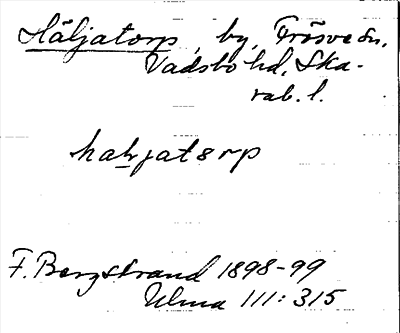 Häljatorp, by, Frösve sn,
Vadsbo hd, Ska-
rab. l.
haljatorp
F. Bergstrand 1898-99
Ulma 111:315